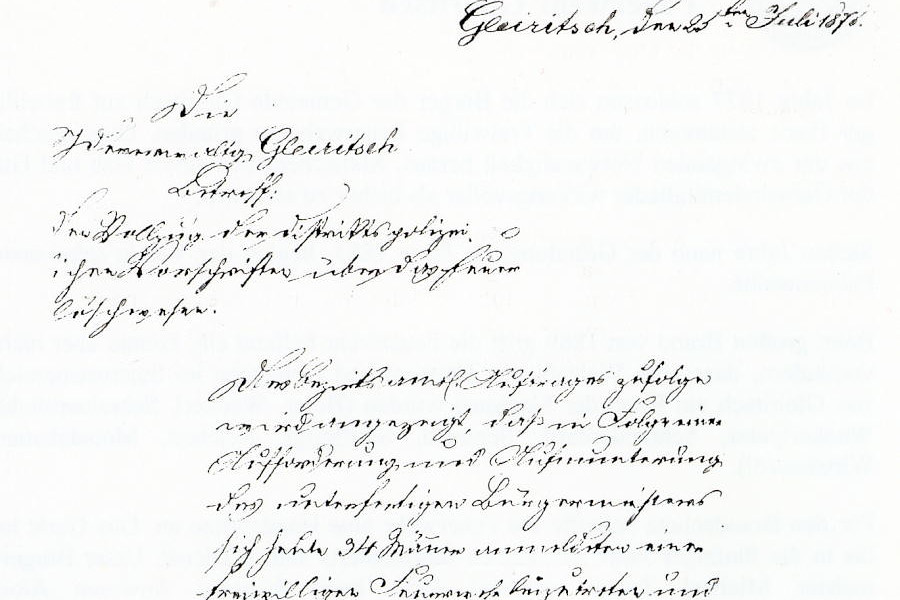 Gleiritsch, den 25ten Juli 1876.
Die
Gleiritsch
Betreff.
den Vollzug der distriktspolizei-
lichen Vorschriften über das Feuer
löschwesen.
Des bezirksamtl. Auftrages zufolge
wird angezeigt, daß in Folge einer
Aufforderung und Aufmunterung
des unterfertigten Bürgermeisters
sich heute 34 Männer anmeldeten einer
freiwilligen Feuerwehr beizutreten und